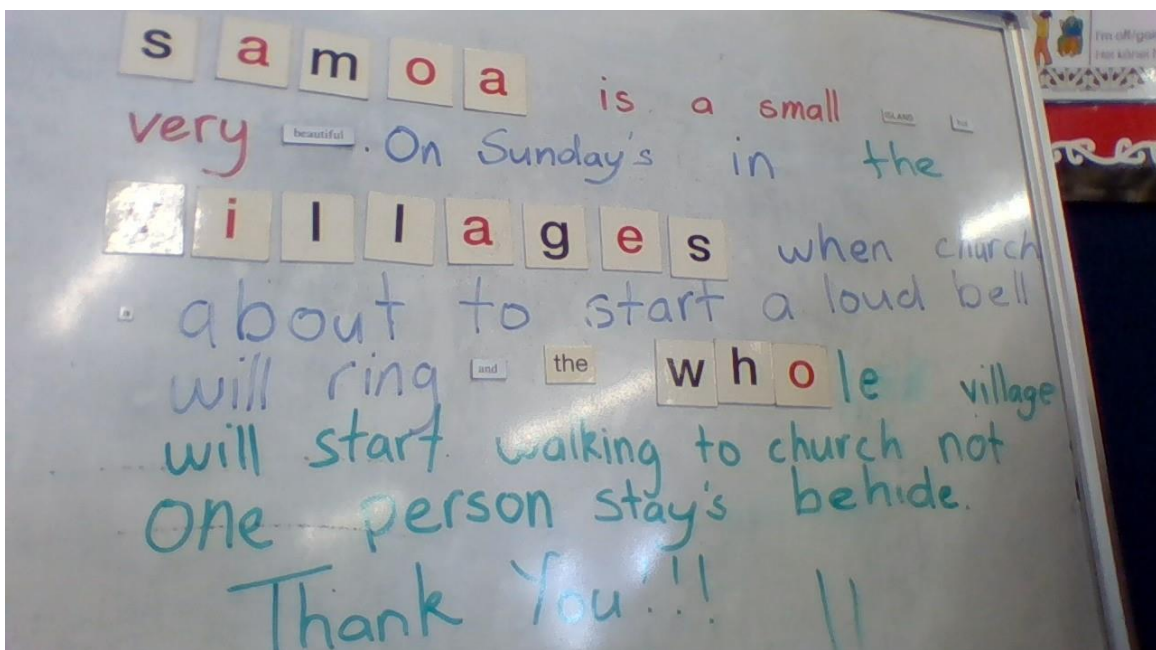 samoa is a small ISLAND but
very beautiful. On Sunday's in the
illages when church
about to start a loud bell
will ring and the whole village
will start walking to church not
one person stay's behide.
Thank You!!!